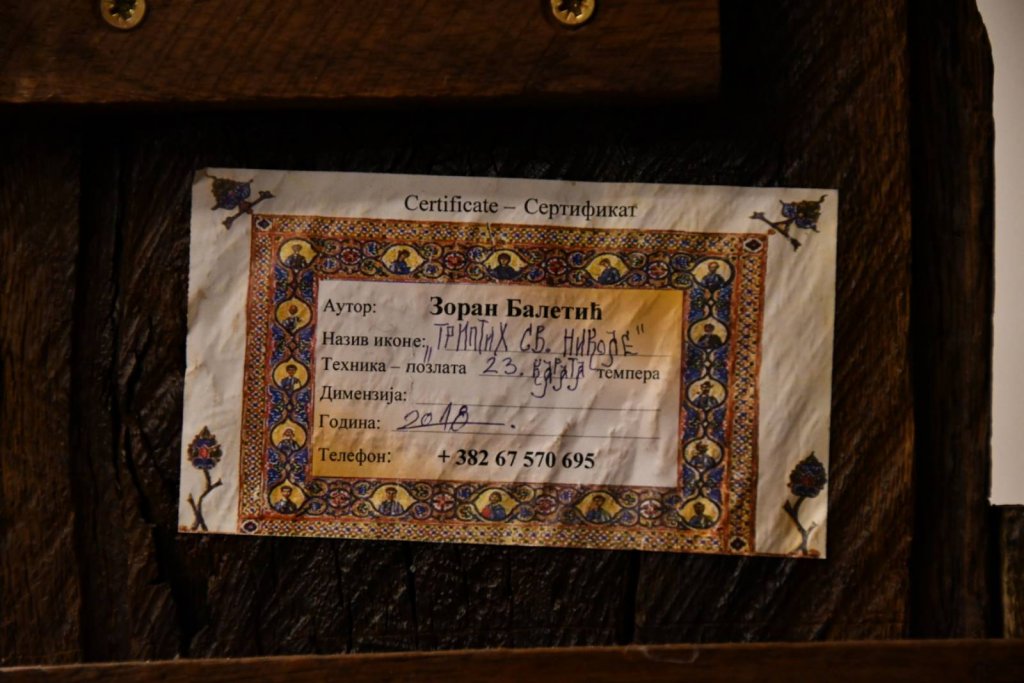 Certificate – Сертификат
Аутор: Зоран Балетић
Назив иконе: "ТРИПТИХ СВ. НИКОЛЕ"
Техника – позлата 23. карата темпера
Димензија:
Година: 2018.
Телефон: + 382 67 570 695